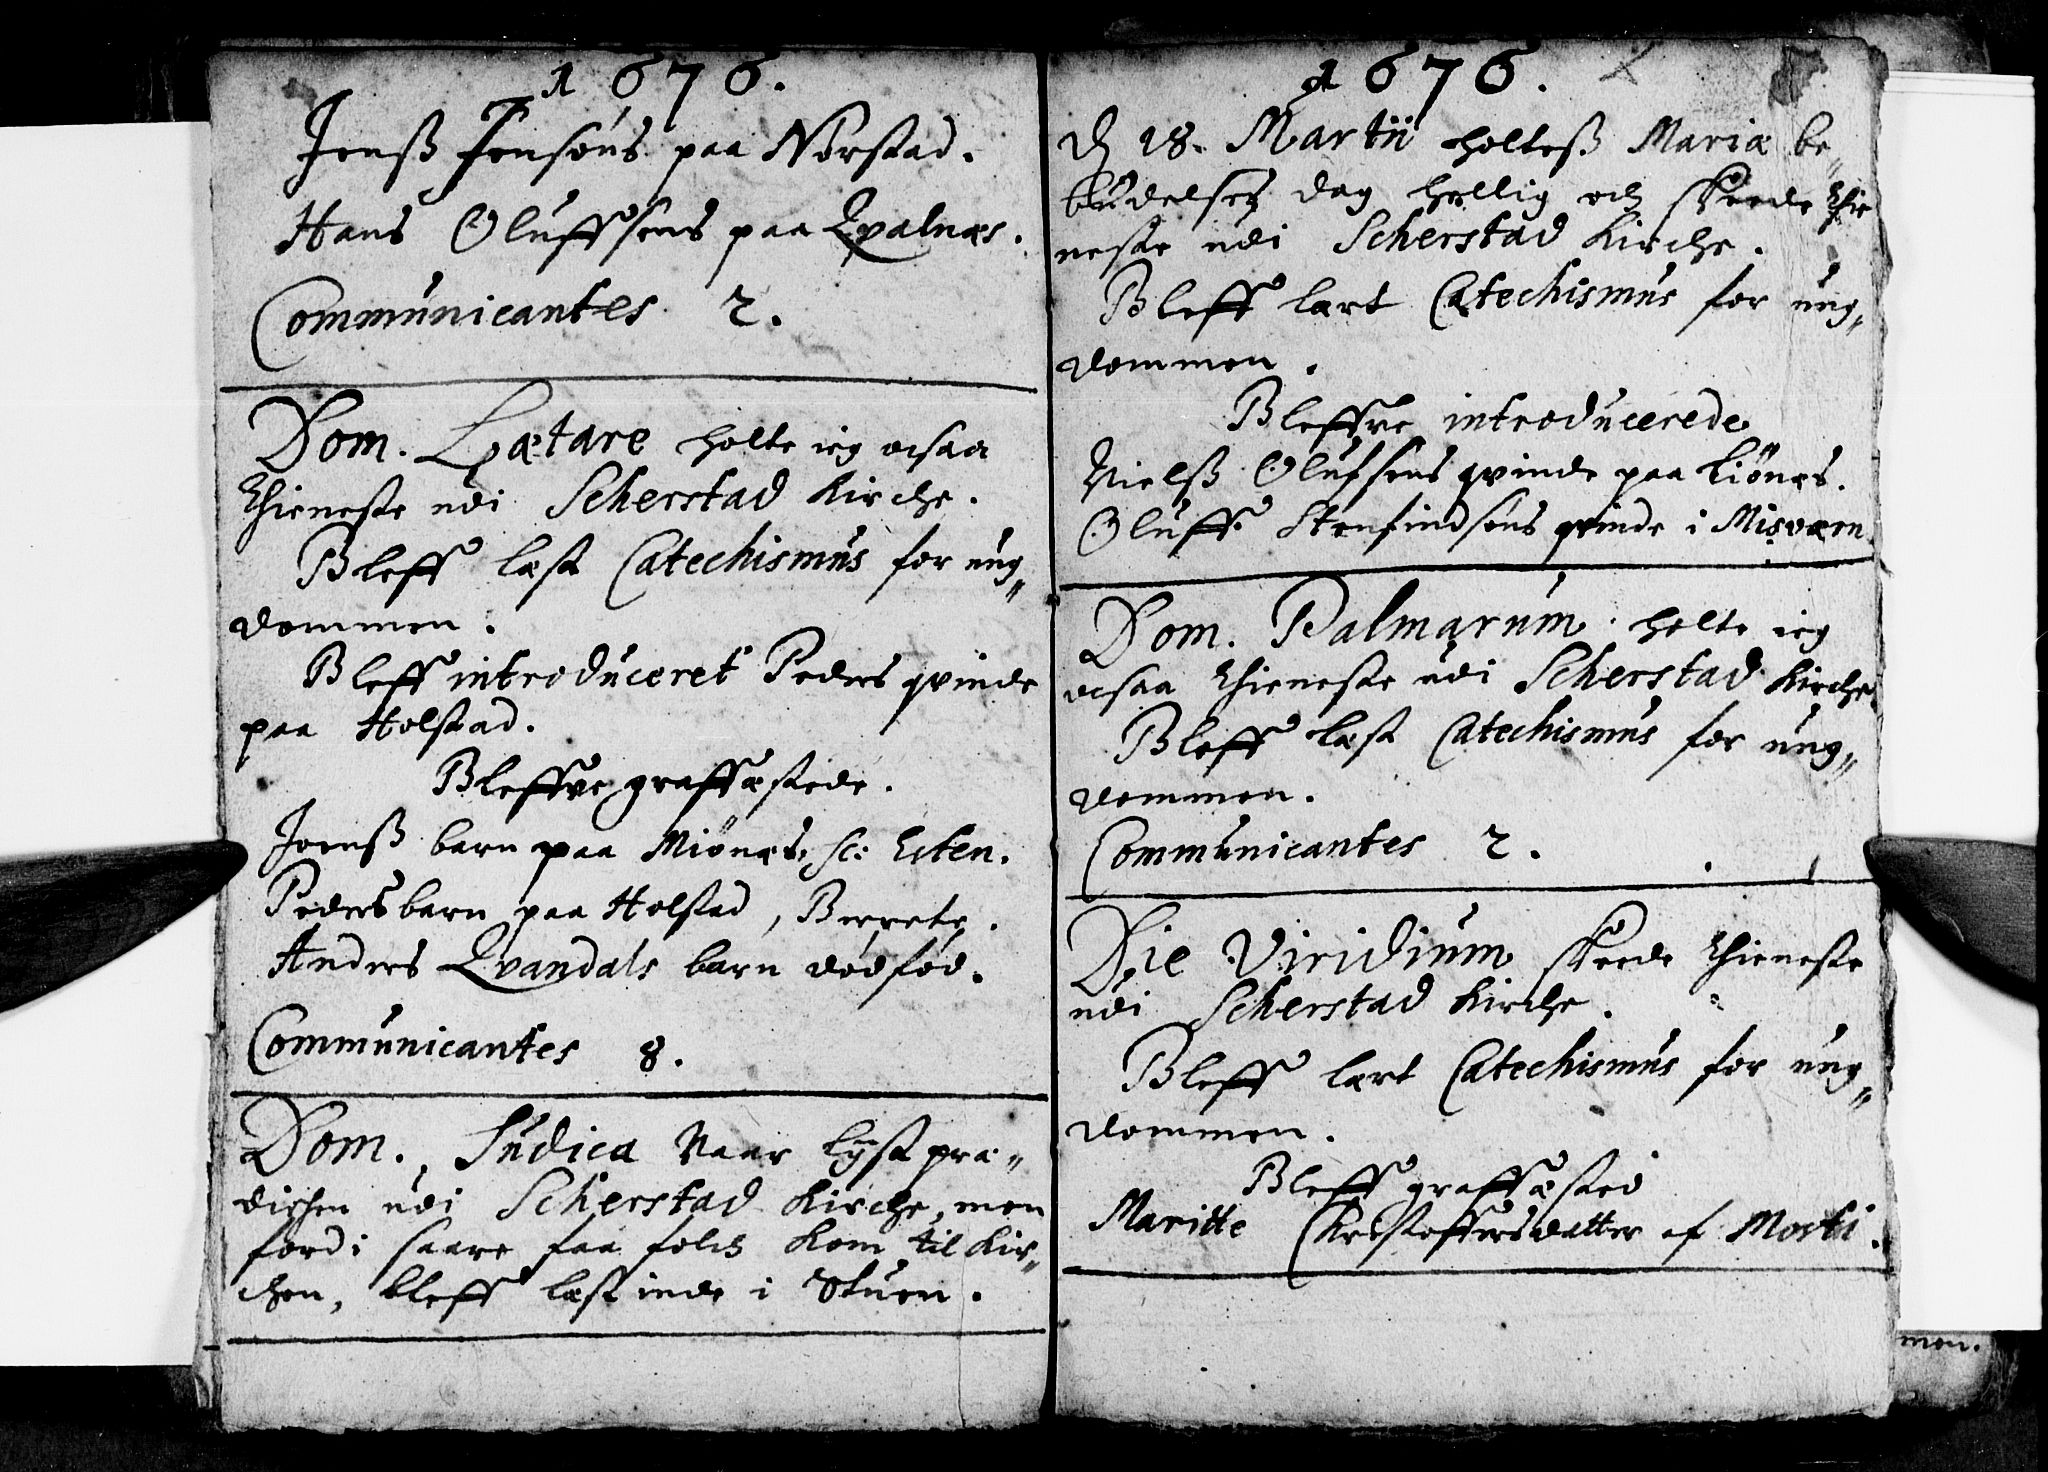 1676.
Jenß Jensøns paa Norstad.
Hans Oluffsens paa Qvalnæs.
Communicantes 2.
Dom. Lætare holte ieg ocsaa
thieneste udi Scherstad Kirche.
Bleff læst Catechismus for ung„
dommen.
Bleff introduceret Peders qvinde
paa Holstad.
Bleffve graffæstede.
Joenß barn paa Miønæs, sc:
Peders barn paa Holstad, Berrete.
Anders Qvandals barn dødfød.
Communicantes 8.
Dom. Judica Vaar lyst præ„
dichen udi Scherstad Kirche, men
fordi saare faa folch kom til Kir„
chen, bleff læst inde i Stuen.
1676.
D 18. Martii holteß Mariæ be„
budelses dag hellig och skeede thie
neste udi Scherstad Kirche.
Bleff lært Catechismus for ung„
dommen.
Bleffve introducerede
Nielß Olufsens qvinde paa Liønes.
Oluff Stenfindsøns qvinde i Misværn
Dom. Palmarum holte ieg
ocsaa thieneste udi Scherstad Kirche.
Bleff læst Catechismus for ung„
dommen.
Communicantes 2.
Die Viridium skeede thieneste
udi Scherstad Kirche.
Bleff lært Catechismus for ung„
dommen.
Bleff graffæsted
Maritte Christoffersdatter af
men.